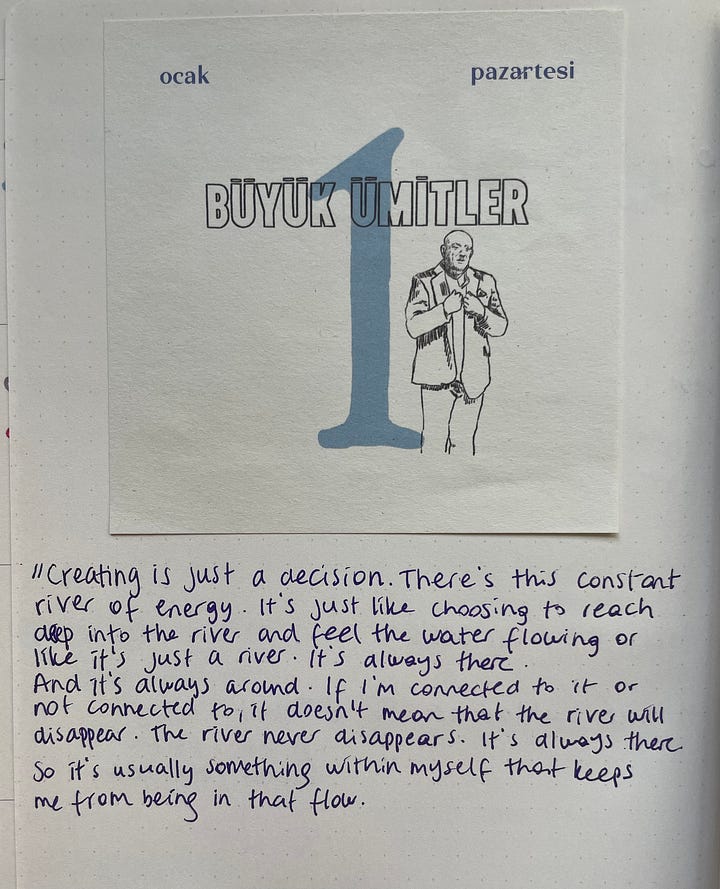 ocak pazartesi
1
BÜYÜK ÜMİTLER
"Creating is just a decision. There's this constant
river of energy. It's just like choosing to reach
deep into the river and feel the water flowing or
like it's just a river. It's always there.
And it's always around. If I'm connected to it or
not connected to, it doesn't mean that the river will
disappear. The river never disappears. It's always there.
So it's usually something within myself that keeps
me from being in that flow.